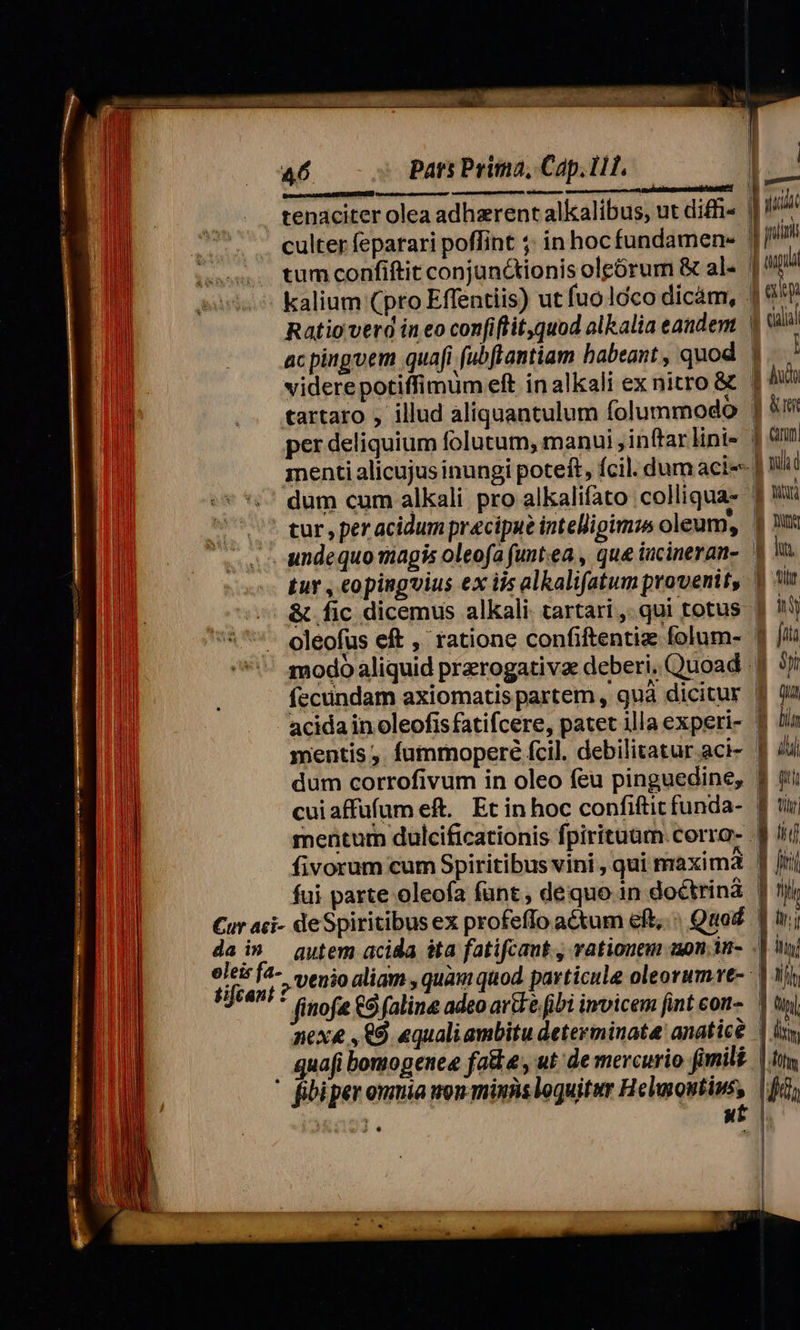 46 Pars Prima, Cap. III.
tenaciter olea adhærent alkalibus, ut diffi-
culter ſeparari poſſint ; in hoc fundamen-
tum conſiſtit conjunctionis oleôrum & al-
kalium (pro Eſſentiis) ut ſuo lóco dicàm,
Ratio verò in eo conſiſtit, quod alkalia eandem
ac pingvem quaſi ſubſtantiam habeant, quod
videre potiſſimùm eſt in alkali ex nitro &
tartaro, illud aliquantulum ſolummodò
per deliquium ſolutum, manui, inſtar lini-
menti alicujus inungi poteſt, ſcil. dum aci-
dum cum alkali pro alkaliſato colliqua-
tur, per acidum præcipuè intelligimus oleum,
unde quo magis oleoſa ſunt ea, quæ incineran-
tur, eo pingvius ex iis alkaliſatum provenit,
& ſic dicemus alkali tartari, qui totus
oleoſus eſt, ratione conſiſtentiæ ſolum-
modò aliquid prærogativæ deberi. Quoad
ſecundam axiomatis partem, quâ dicitur
acida in oleoſis fatiſcere, patet illa experi-
mentis, ſummoperè ſcil. debilitatur aci-
dum corroſivum in oleo ſeu pinguedine,
cui affuſum eſt. Et in hoc conſiſtit funda-
mentum dulcificationis ſpirituum corro-
ſivorum cum Spiritibus vini, qui maximâ
ſui parte oleoſa ſunt, de quo in doctrinâ
Cur aci- de Spiritibus ex profeſſo actum eſt, Quod
da in autem acida ita fatiſcant, rationem non in-
oleis fa- venio aliam, quàm quod particulæ oleorum re-
tiſcant? ſinoſæ & ſalinæ adeo arctè ſibi invicem ſint con-
nexæ, & æquali ambitu determinatæ anaticè
quaſi homogeneæ factæ, ut de mercurio ſimilé
ſibi per omnia non minùs loquitur Helmontius,
ut